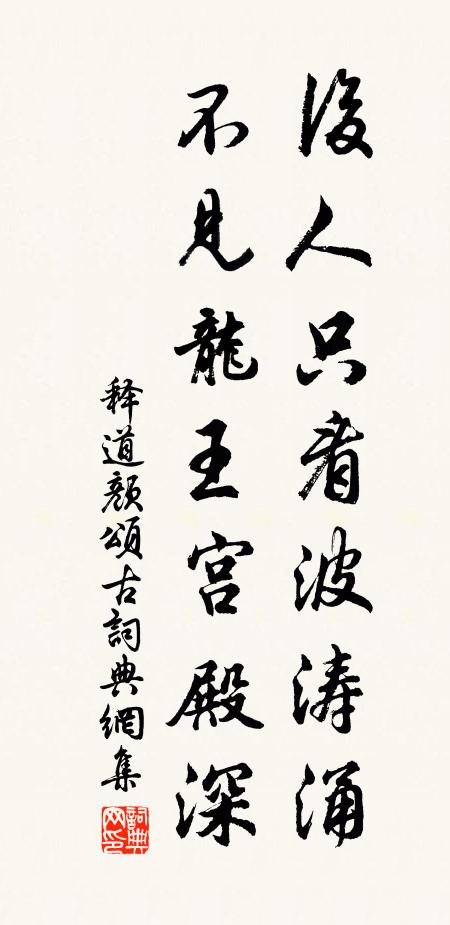 後人只看波涛涌
不見龍王宫殿深
释道顏頌古詞典網集
詞典网印